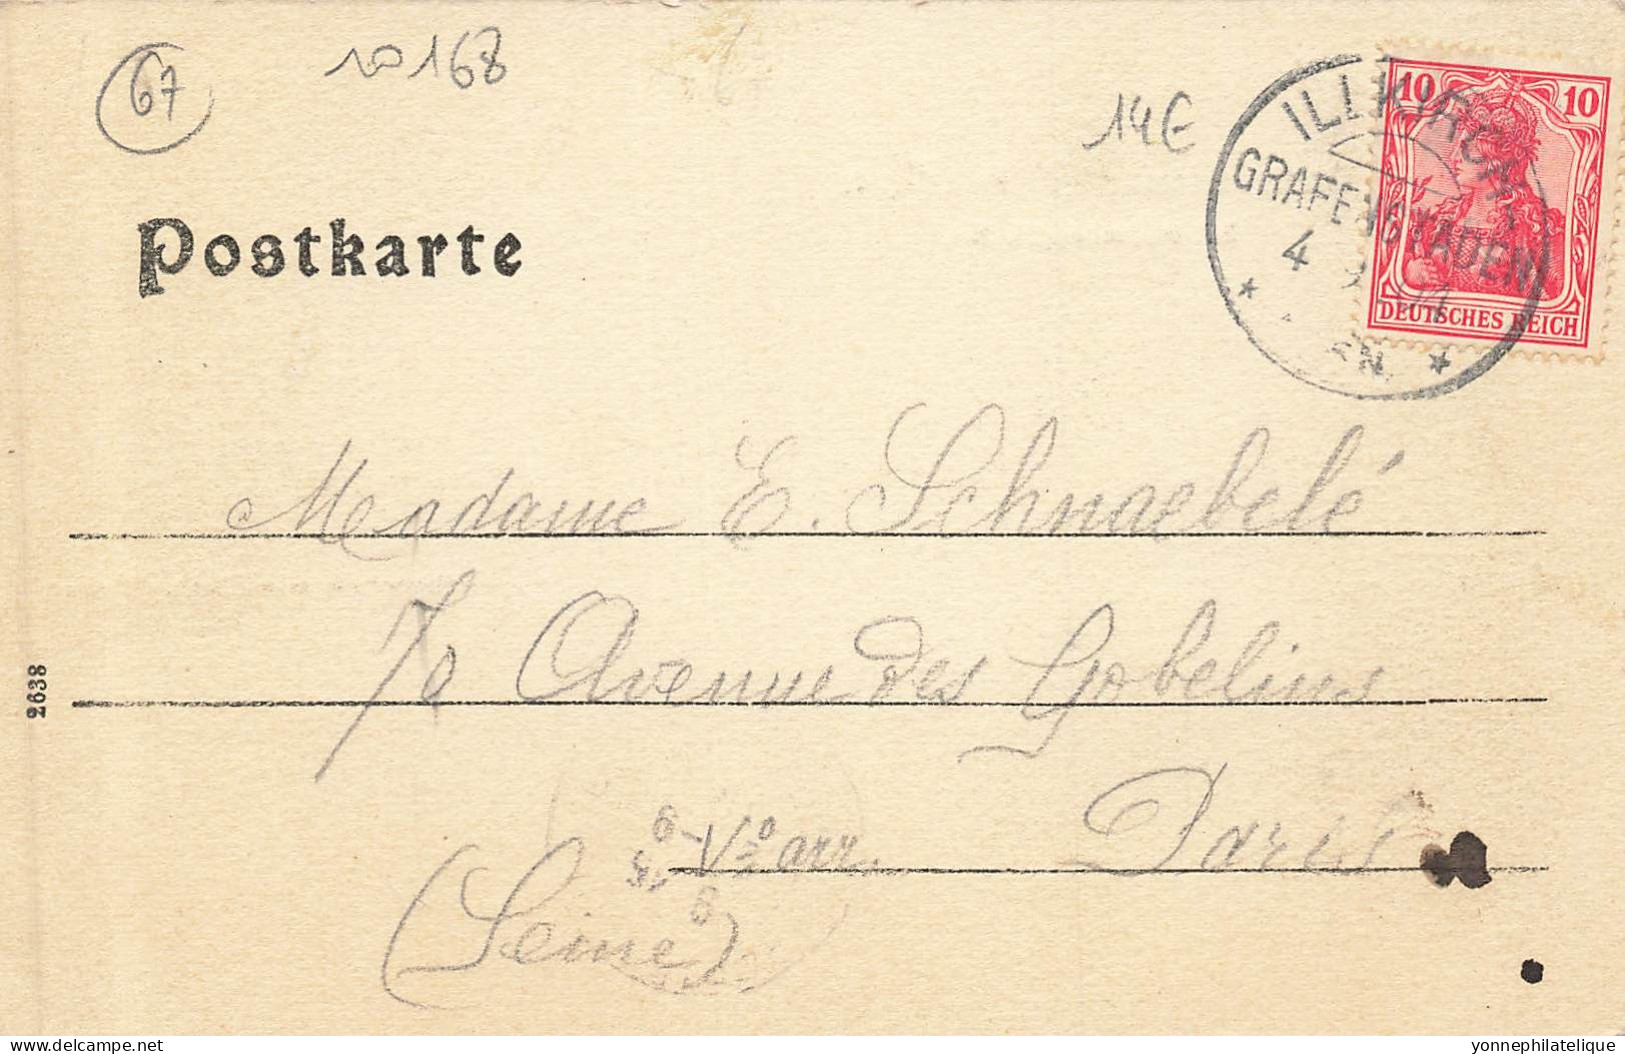 67
no 168
14€
10 10
ILLKIRCH
GRAFENSTADEN
4 9 04
DEUTSCHES REICH
Postkarte
Madame E. Schnaebelé
70 Avenue des Gobelins
Paris
V arr.
(Seine)
2638
delcampe.net
yonnephilatelique